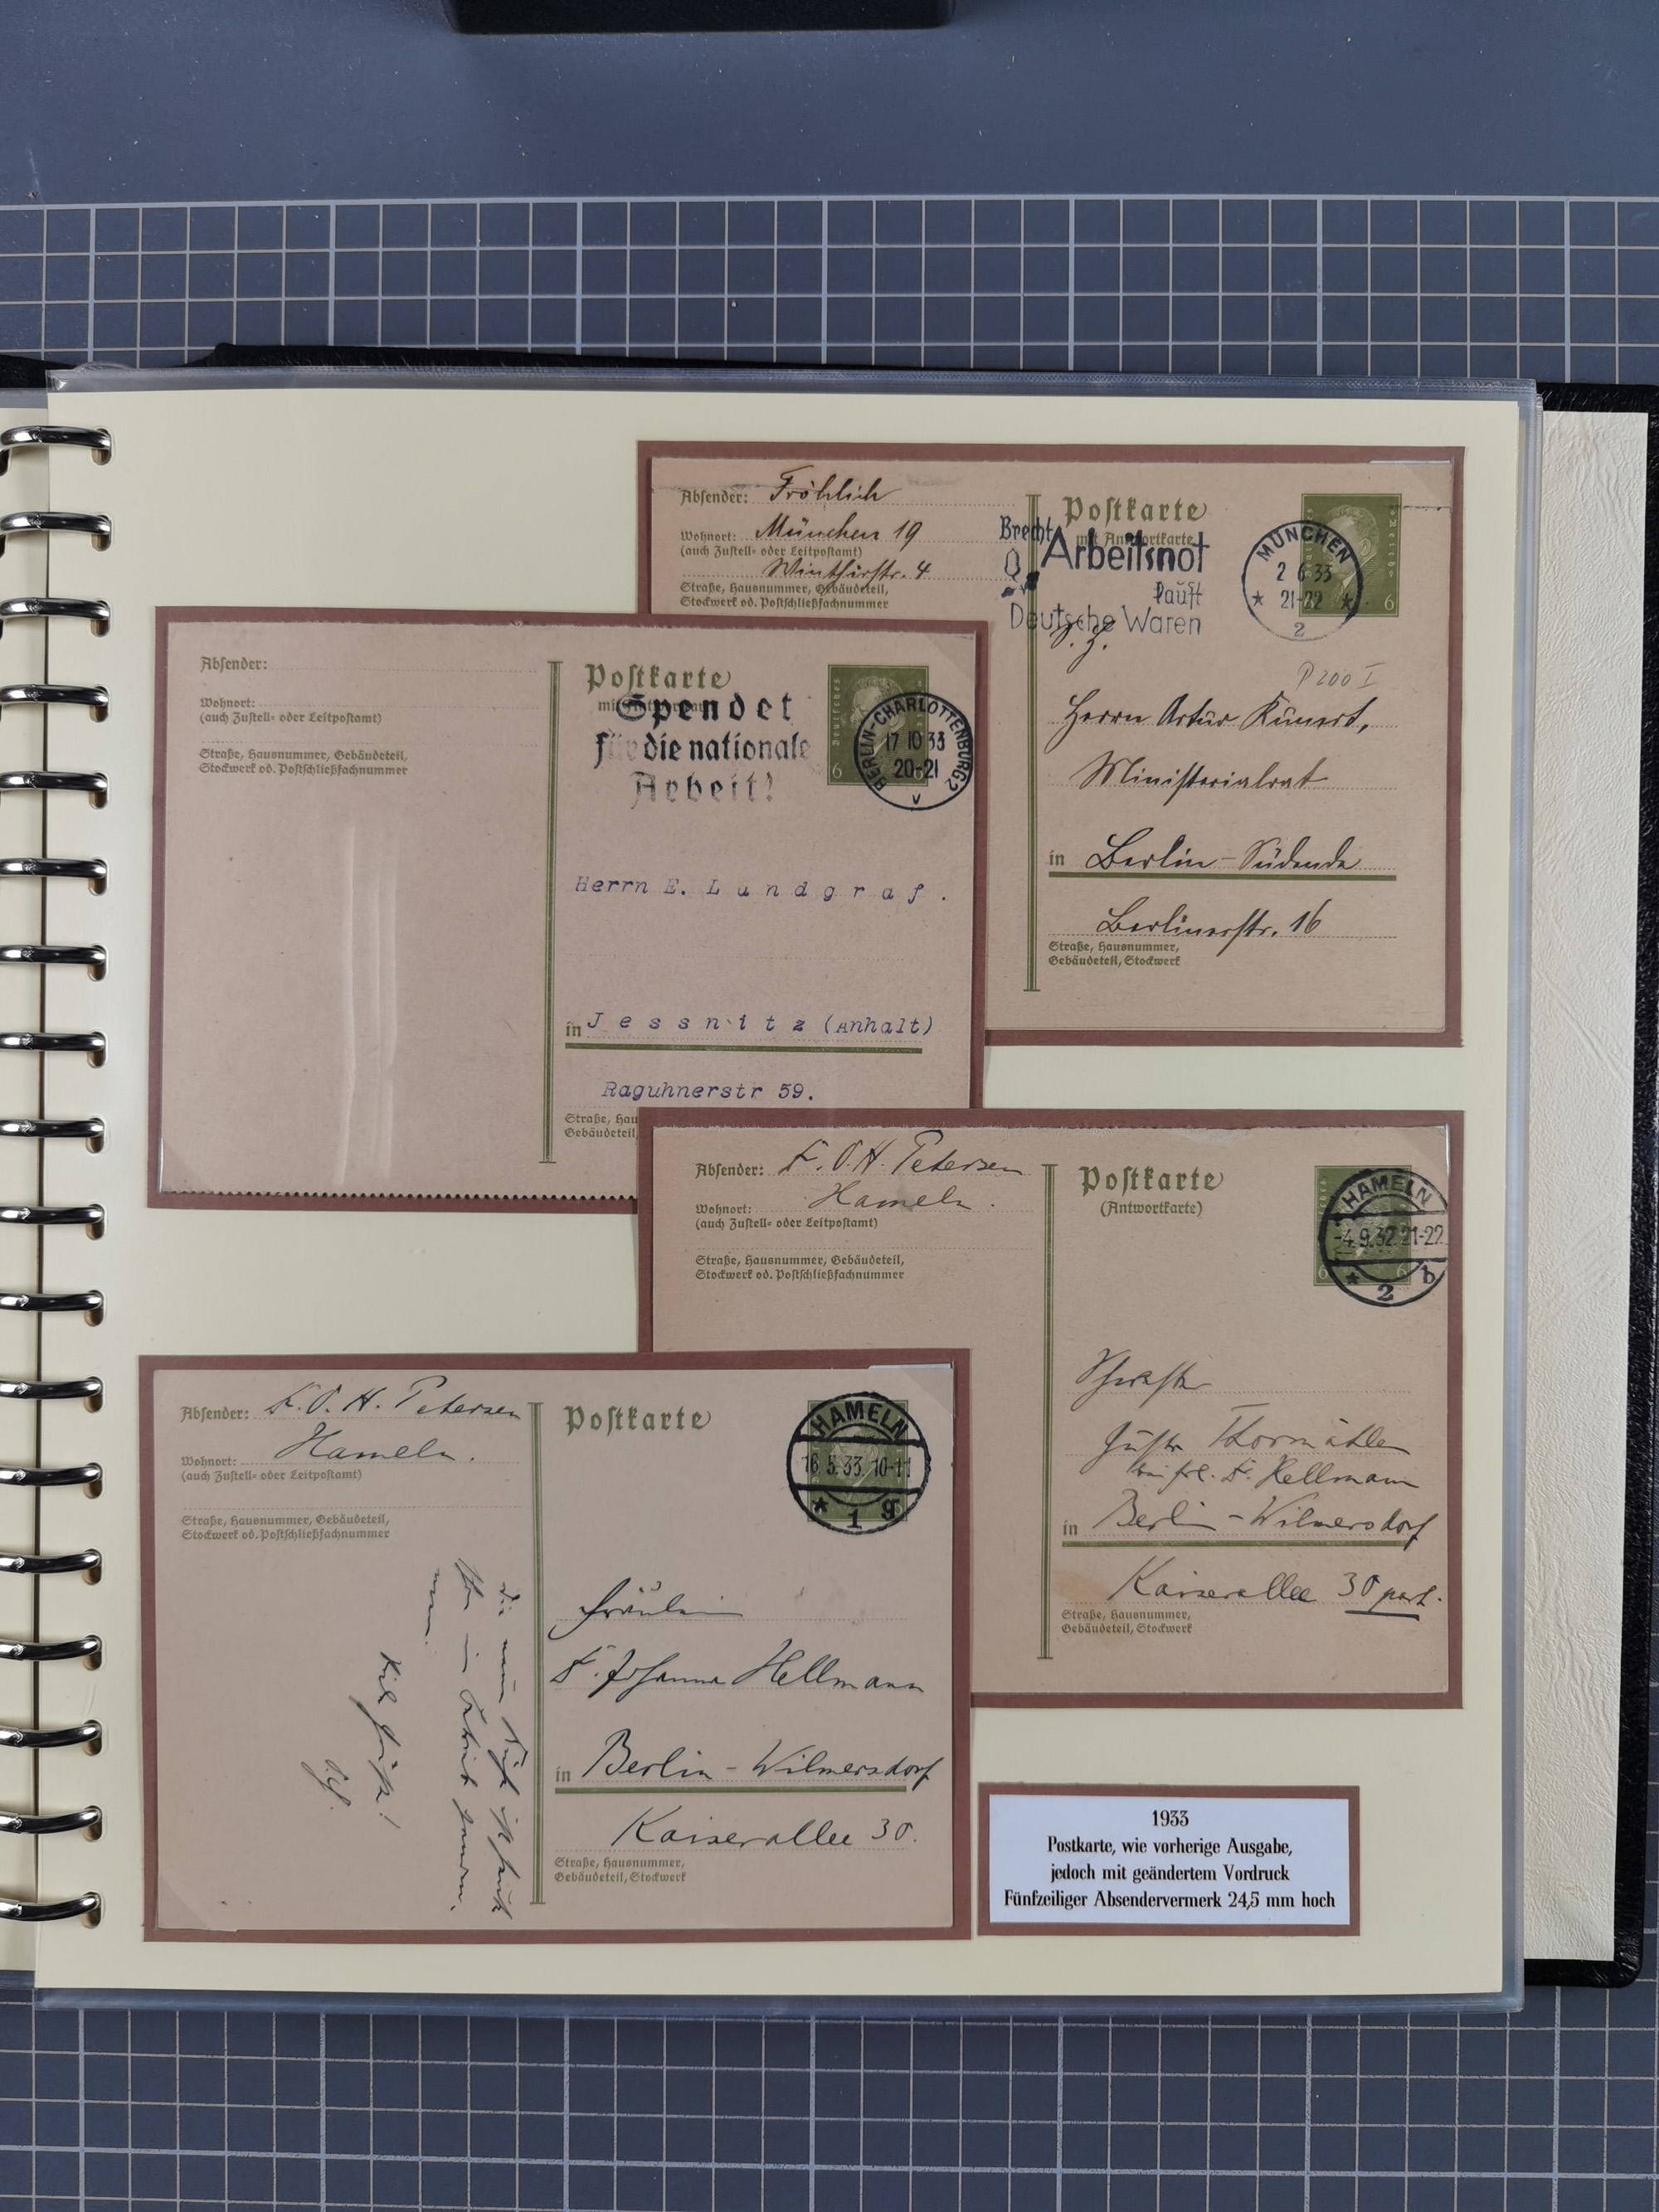 Absender: Fröhlich
Wohnort: München 19
(auch Zustell- oder Leitpostamt)
Winthirstr. 4
Straße, Hausnummer, Gebäudeteil,
Stockwerk od. Postschließfachnummer
Postkarte
mit Antwortkarte
Brecht
Arbeitsnot
kauft
Deutsche Waren
MÜNCHEN
2 6 33
★ 21-22 ★
2
6
P 200 I
Herrn Artur Kunert,
Ministerialrat
in Berlin-Südende
Berlinerstr. 16
Straße, Hausnummer,
Gebäudeteil, Stockwerk
Absender:
Wohnort:
(auch Zustell- oder Leitpostamt)
Straße, Hausnummer, Gebäudeteil,
Stockwerk od. Postschließfachnummer
Postkarte
Spendet
für die nationale
Arbeit!
BERLIN-CHARLOTTENBURG 2
17 10 33
20-21
v
6
Herrn E. Landgraf.
in Jessnitz (Anhalt)
Raguhnerstr 59.
Straße, Hau
Gebäudeteil,
Absender: Dr. O. H. Petersen
Wohnort: Hameln.
(auch Zustell- oder Leitpostamt)
Straße, Hausnummer, Gebäudeteil,
Stockwerk od. Postschließfachnummer
Postkarte
(Antwortkarte)
HAMELN
-4.9.32.21-22
★ 2 b
6 6
Schwester
Thormählen
bei Frl. Dr. Hellmann
in Berlin-Wilmersdorf
Kaiserallee 30 part.
Straße, Hausnummer,
Gebäudeteil, Stockwerk
Absender: Dr. O. H. Petersen
Wohnort: Hameln.
(auch Zustell- oder Leitpostamt)
Straße, Hausnummer, Gebäudeteil,
Stockwerk od. Postschließfachnummer
Postkarte
HAMELN
16.5.33.10-11
★ 1 g
Fräulein
Dr. Johanna Hellmann
in Berlin-Wilmersdorf
Kaiserallee 30.
Straße, Hausnummer,
Gebäudeteil, Stockwerk
1933
Postkarte, wie vorherige Ausgabe,
jedoch mit geändertem Vordruck
Fünfzeiliger Absendervermerk 24,5 mm hoch